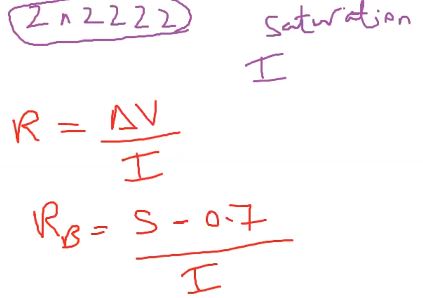 2n2222
saturation
I
R = ΔV / I
R_B = 5 - 0.7 / I